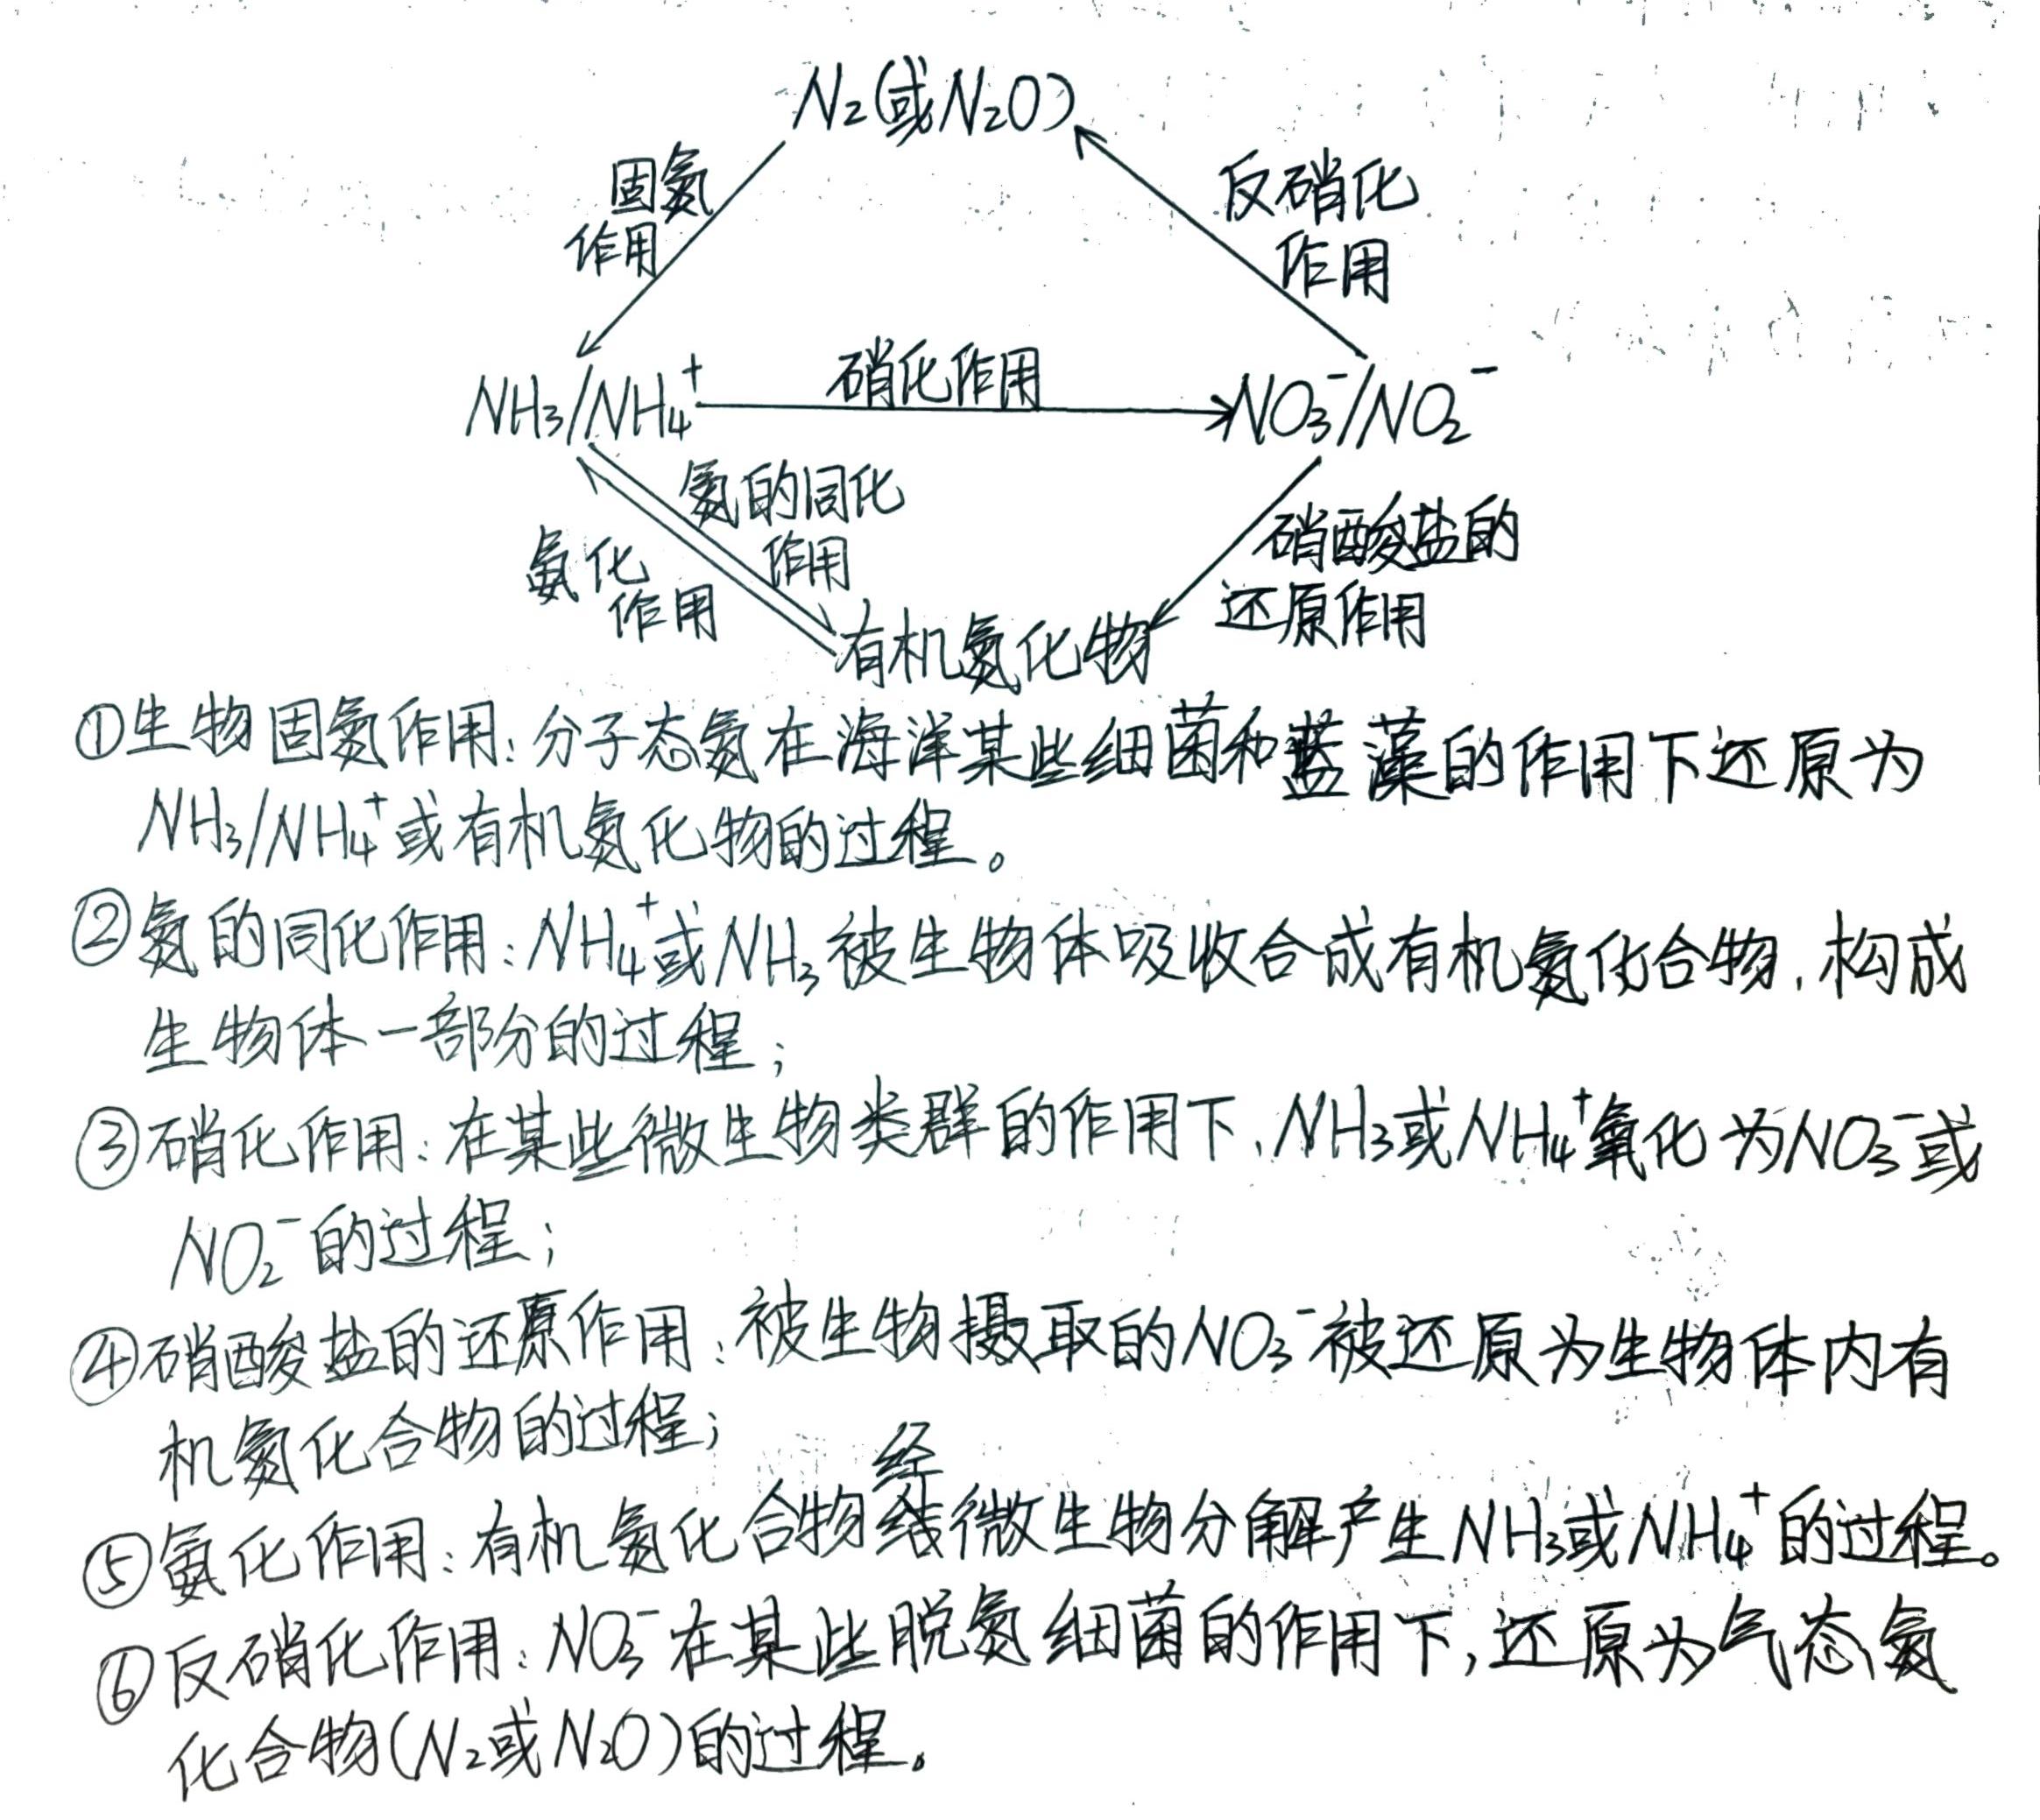 N₂(或N₂O)
固氮
作用
反硝化
作用
硝化作用
NH₃/NH₄⁺
NO₃⁻/NO₂⁻
氨的同化
作用
氨化
作用
硝酸盐的
还原作用
有机氮化物
①生物固氮作用:分子态氮在海洋某些细菌和蓝藻的作用下还原为
NH₃/NH₄⁺或有机氮化物的过程。
②氨的同化作用:NH₄⁺或NH₃被生物体吸收合成有机氮化合物,构成
生物体一部分的过程;
③硝化作用:在某些微生物类群的作用下,NH₃或NH₄⁺氧化为NO₃⁻或
NO₂⁻的过程;
④硝酸盐的还原作用:被生物摄取的NO₃⁻被还原为生物体内有
机氮化合物的过程;
⑤氨化作用:有机氮化合物经微生物分解产生NH₃或NH₄⁺的过程。
⑥反硝化作用:NO₃⁻在某些脱氮细菌的作用下,还原为气态氮
化合物(N₂或N₂O)的过程。